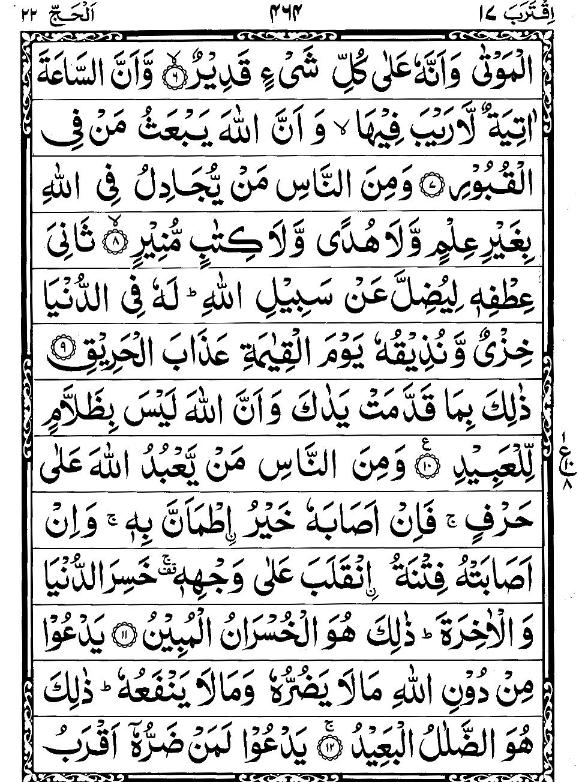 اِقْتَرَبَ ١٧ ٤٦٤ اَلْحَجّ ٢٢
الْمَوْتٰى وَاَنَّهٗ عَلٰى كُلِّ شَىْءٍ قَدِيْرٌ ۙ﴿٦﴾ وَّاَنَّ السَّاعَةَ
اٰتِيَةٌ لَّا رَيْبَ فِيْهَا ۙ وَاَنَّ اللّٰهَ يَبْعَثُ مَنْ فِى
الْقُبُوْرِ ﴿٧﴾ وَمِنَ النَّاسِ مَنْ يُّجَادِلُ فِى اللّٰهِ
بِغَيْرِ عِلْمٍ وَّلَا هُدًى وَّلَا كِتٰبٍ مُّنِيْرٍ ۙ﴿٨﴾ ثَانِىَ
عِطْفِهٖ لِيُضِلَّ عَنْ سَبِيْلِ اللّٰهِ ؕ لَهٗ فِى الدُّنْيَا
خِزْىٌ وَّنُذِيْقُهٗ يَوْمَ الْقِيٰمَةِ عَذَابَ الْحَرِيْقِ ﴿٩﴾
ذٰلِكَ بِمَا قَدَّمَتْ يَدٰكَ وَاَنَّ اللّٰهَ لَيْسَ بِظَلَّامٍ
لِّلْعَبِيْدِ ﴿١٠﴾ ع وَمِنَ النَّاسِ مَنْ يَّعْبُدُ اللّٰهَ عَلٰى ع ١٠ ٨
حَرْفٍ ۚ فَاِنْ اَصَابَهٗ خَيْرُ ۨاطْمَاَنَّ بِهٖ ۚ وَاِنْ
اَصَابَتْهُ فِتْنَةُ ۨانْقَلَبَ عَلٰى وَجْهِهٖ ۚ قف خَسِرَ الدُّنْيَا
وَالْاٰخِرَةَ ؕ ذٰلِكَ هُوَ الْخُسْرَانُ الْمُبِيْنُ ﴿١١﴾ يَدْعُوْا
مِنْ دُوْنِ اللّٰهِ مَا لَا يَضُرُّهٗ وَمَا لَا يَنْفَعُهٗ ؕ ذٰلِكَ
هُوَ الضَّلٰلُ الْبَعِيْدُ ۚ﴿١٢﴾ يَدْعُوْا لَمَنْ ضَرُّهٗۤ اَقْرَبُ